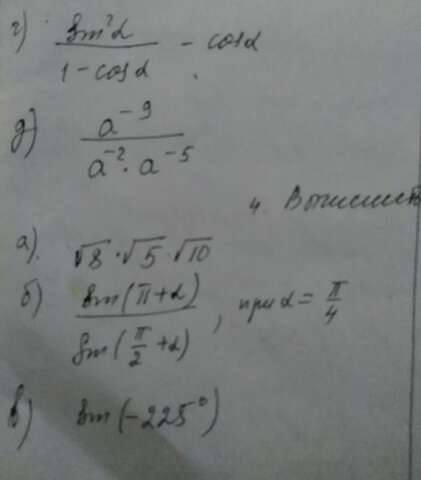 г) sin²α / 1 - cosα - cosα
д) a⁻⁹ / a⁻² · a⁻⁵
4. Вычислить
а) √8 · √5 · √10
б) sin(π+α) / sin(π/2 + α), при α = π/4
в) sin(-225°)